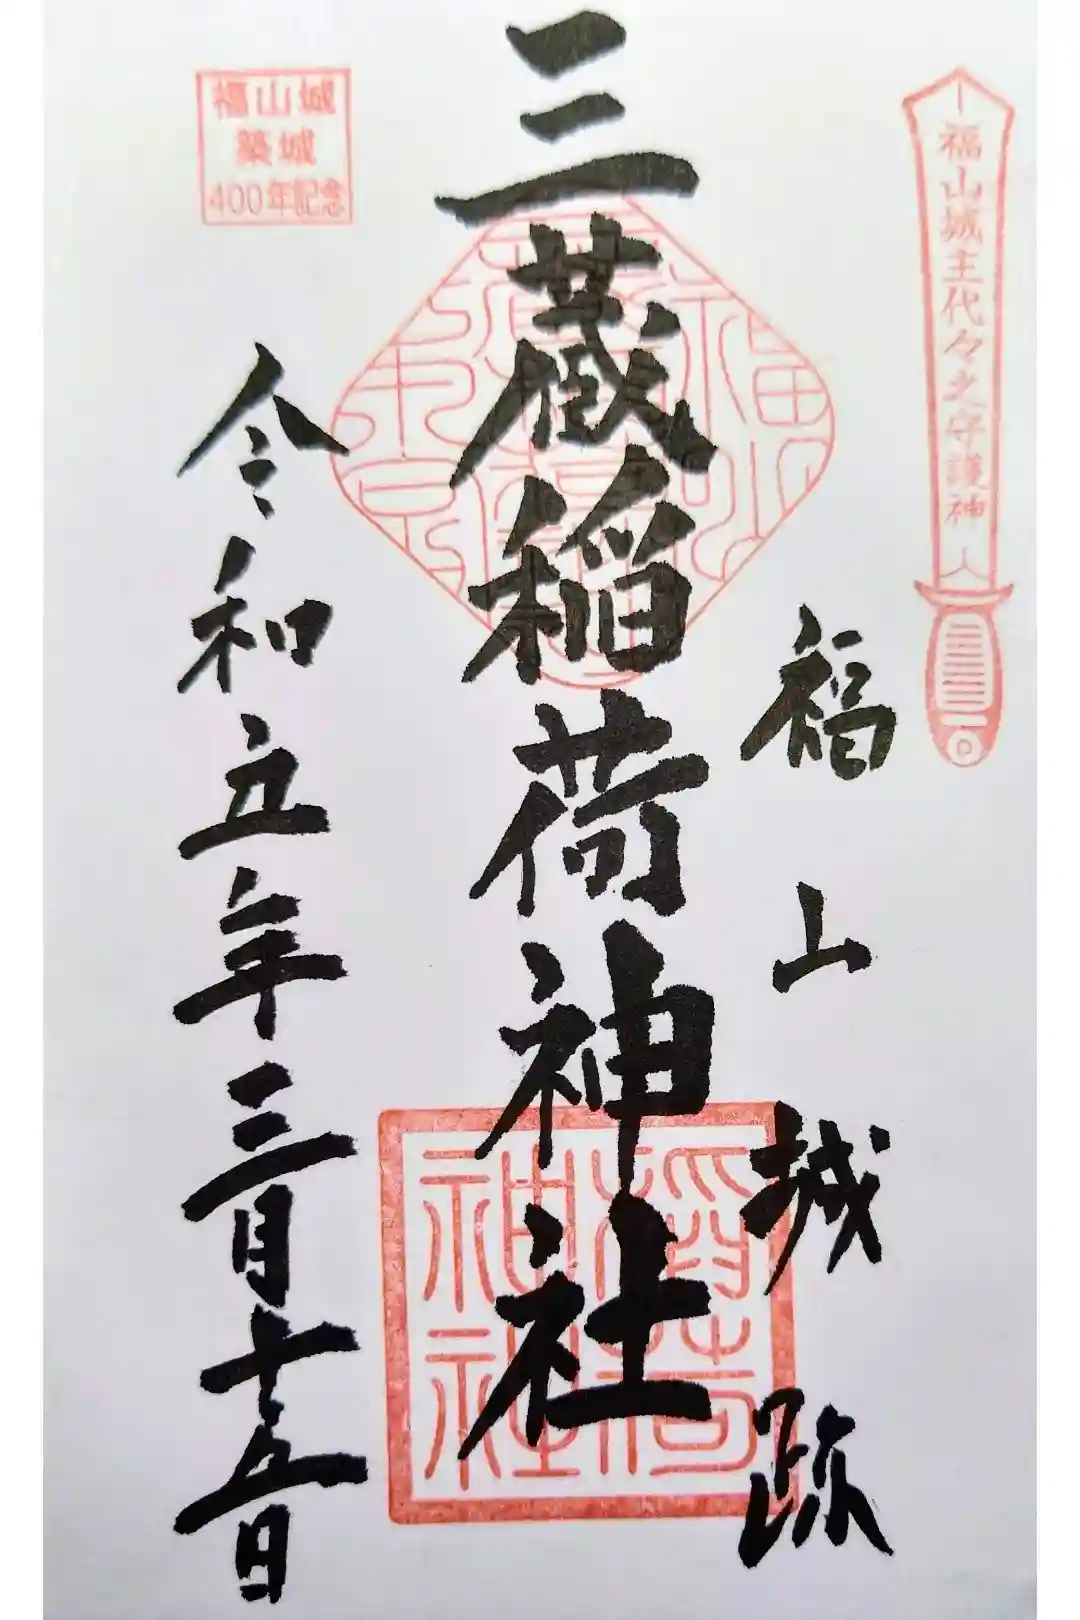 福山城主代々之守護神
福山城跡
三蔵稲荷神社
福山城
築城
400年記念
稲荷
神社
令和五年三月十五日